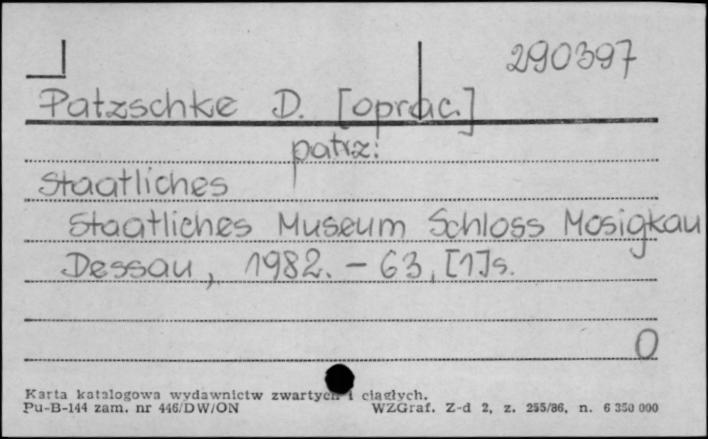 290397
Patzschke D. [oprac.]
patrz:
Staatliches
Staatliches Museum Schloss Mosigkau
Dessau, 1982. – 63, [1]s.
0
Karta katalogowa wydawnictw zwartych i ciągłych.
Pu-B-144 zam. nr 446/DW/ON WZGraf. Z-d 2, z. 255/86, n. 6 350 000